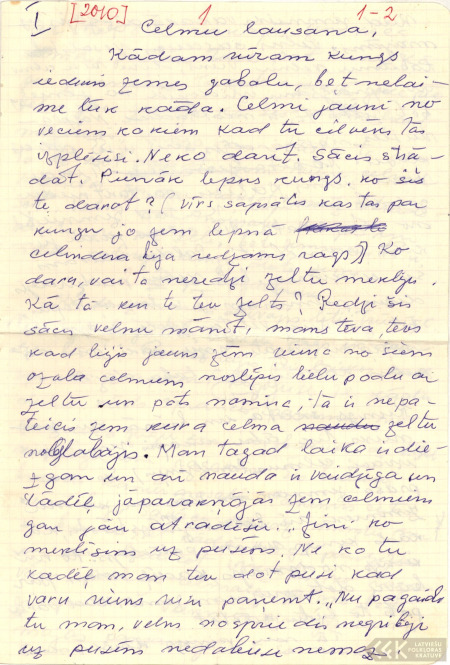 I [2010] 1 1-2
Celmu laušana.
Kādam vīram kungs
iedevis zemes gabalu, bet nelai-
me tik kāda. Celmi jauni no
veciem kokiem kad tu cilvēks tas
izplēsīsi. Neko darīt. Sācis strā-
dāt. Pienāk lepns kungs, ko šis
te darot? (Vīrs sapratis kas tas par
kungu jo zem lepnā
cilindera bija redzams rags) Ko
daru, vai tu neredzi zeltu meklēju.
Kā tā kur te tev zelts? Redzi šis
sācis velnu mānīt, mans tēva tēvs
kad bijis jauns zēn vienā no šiem
ozola celmiem noslēpis lielu podu ar
zeltu un pats nomiris, tā ir nepa-
teicis zem kura celma zeltu
noglabājis. Man tagad laika ir die-
gan un arī nauda ir vaidzīga un
kādēļ jāparakņājās zem celmiem
gan jau atradīšu. "Zini ko
meklēsim uz pusēm. Ne ko tu
kadēļ man tev dot pusi kad
varu viens visu paņemt. "Nu pagaidi
tu man, velns nospriedis negribēji
uz pusēm nedabūsi nemaz.
LATVIEŠU
FOLKLORAS
KRĀTUVE